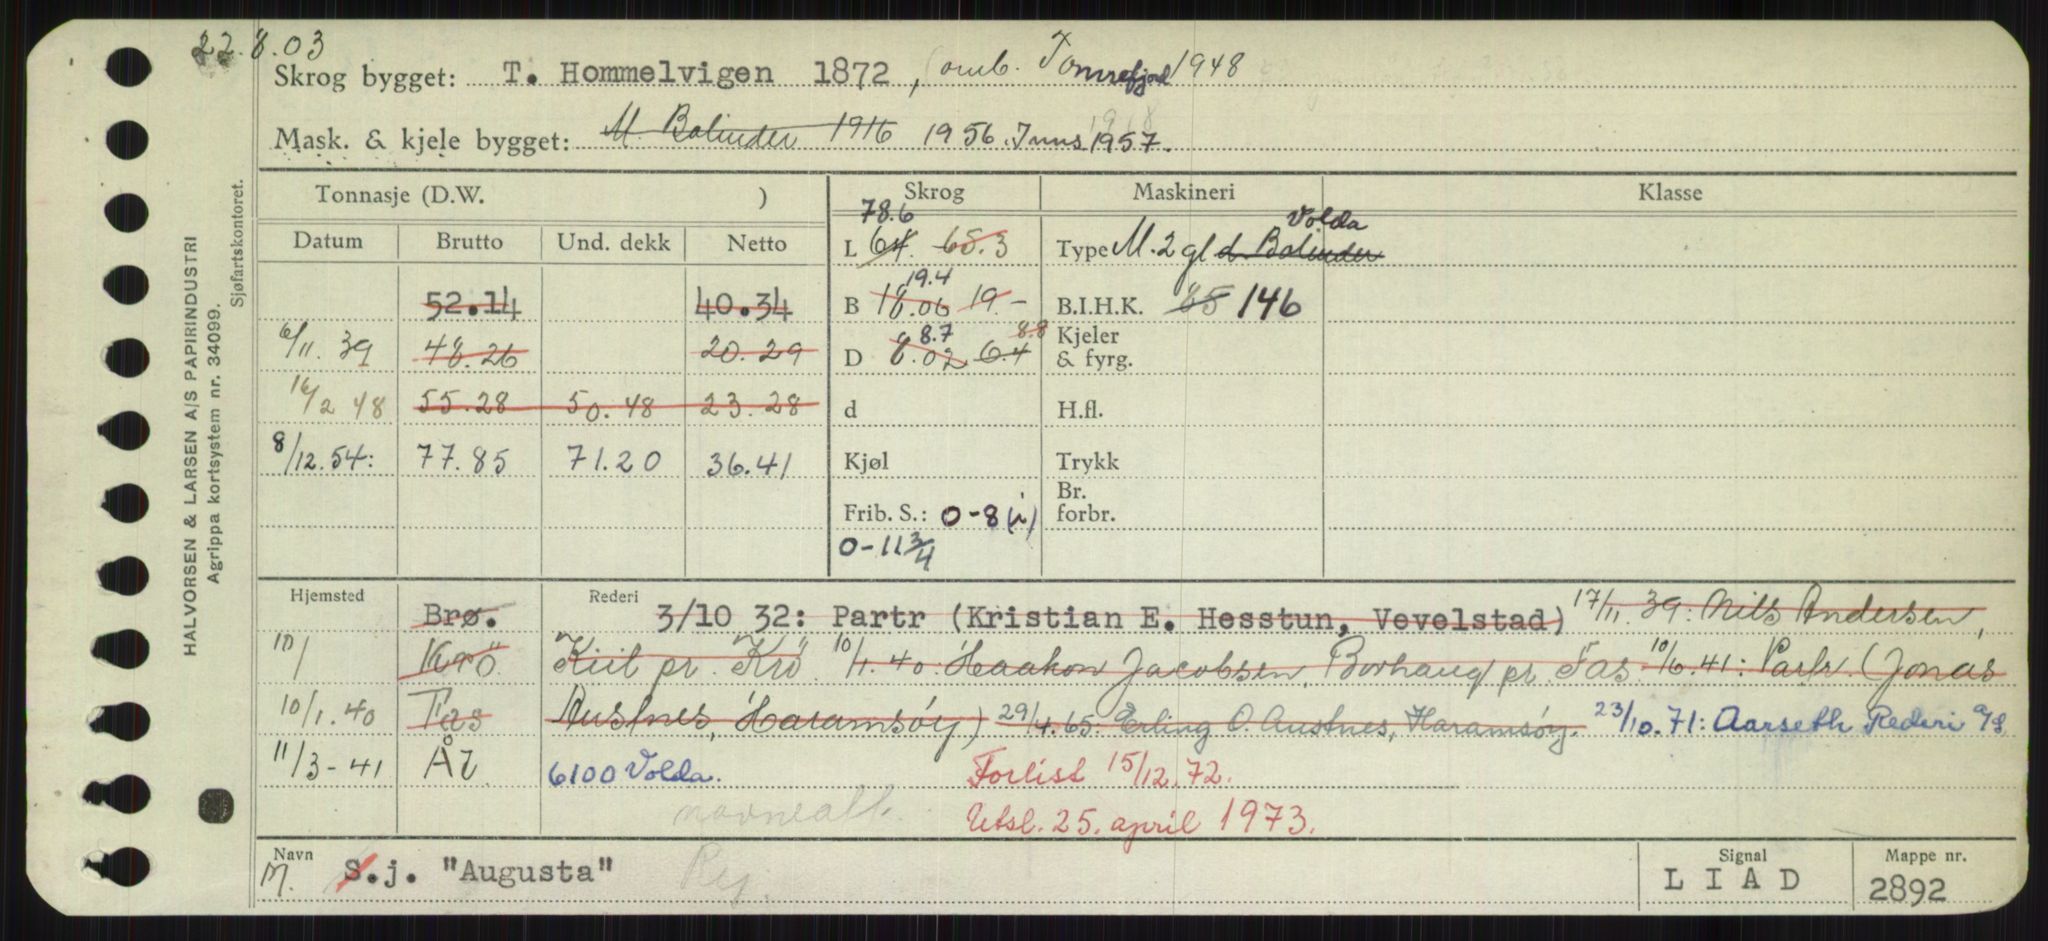 22.8.03
Skrog bygget: T. Hommelvigen 1872, omb. Tomrefjord 1948
Mask. & kjele bygget: M. Bolinder 1916 1956. Inns 1957.
HALVORSEN & LARSEN A/S PAPIRINDUSTRI
Agrippa kortsystem nr. 34099.
Sjøfartskontoret.
Tonnasje (D.W. ) Skrog Maskineri Klasse
Datum Brutto Und. dekk Netto
78.6
L 64. 65.3
Volda
Type M. 2 gl d Bolinder
52.14 40.34
19.4
B 18.06 19.-
B.I.H.K. 65 146
6/11. 39 48.26 20.29
8.7 8.8
D 8.02 6.4
Kjeler
& fyrg.
16/2 48 55.28 50.48 23.28
d
H.fl.
8/12.54: 77.85 71.20 36.41
Kjøl
Trykk
Frib. S.: 0-8 (i)
0-11 3/4
Br.
forbr.
Hjemsted Brø. Rederi 3/10 32: Partr (Kristian E. Hesstun, Vevelstad) 17/11. 39: Nils Andersen,
10/ Krö Kiil pr. Krö 10/1.40: Haakon Jacobsen, Borhaug pr. Fas 10/6.41: Partr. (Jonas
10/1.40 Fas Austnes, Haramsøy) 29/4.65. Erling O. Austnes, Haramsøy. 23/10.71: Aarseth Rederi A/S
11/3-41 Ål 6100 Volda. Forlist 15/12.72.
Utsl. 25. april 1973.
Navn M. S.j. "Augusta"
Signal LIAD
Mappe nr. 2892